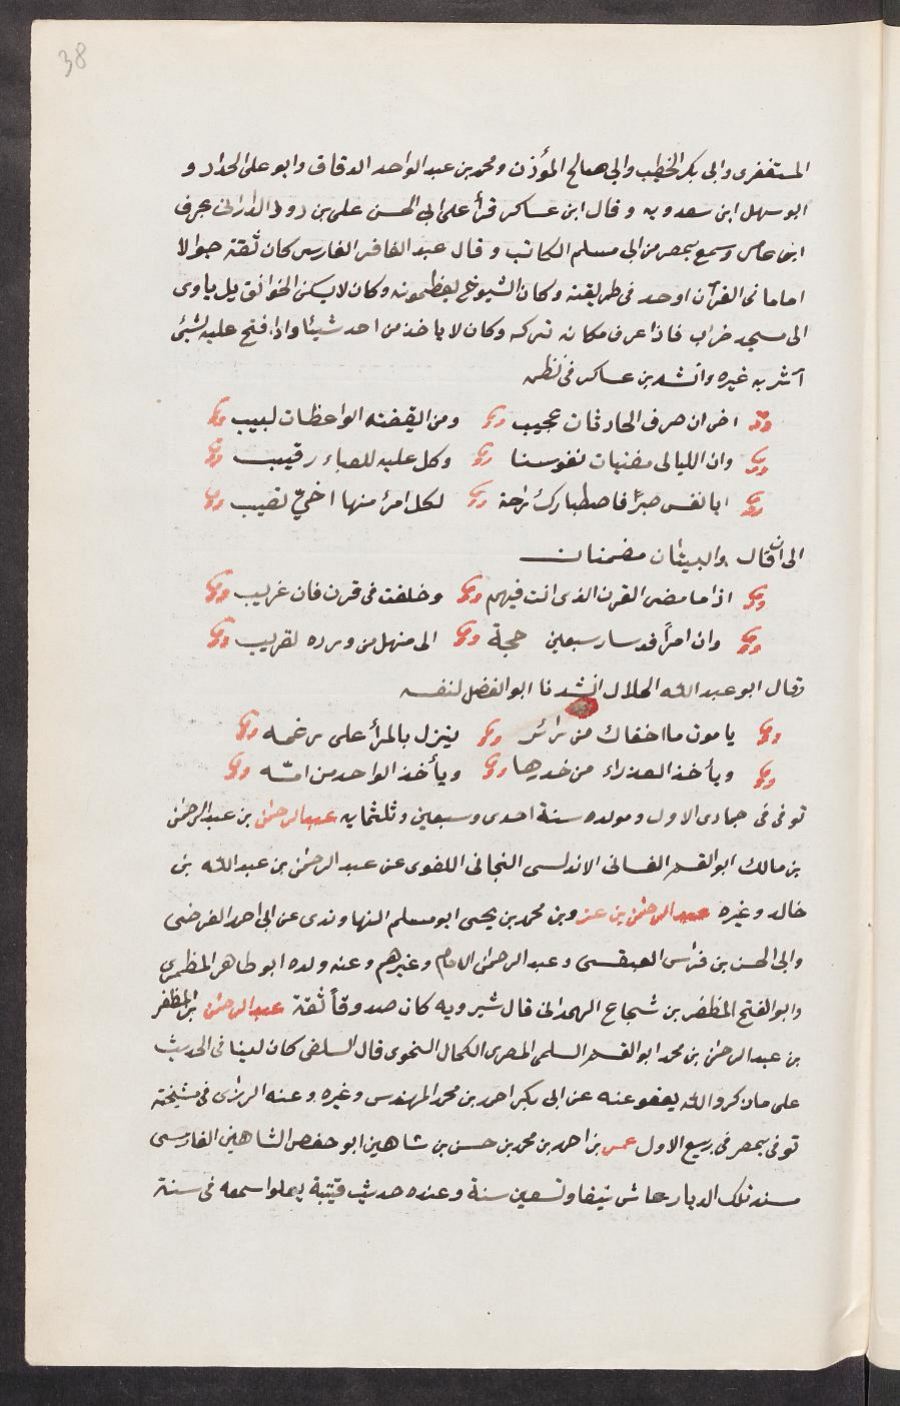 38
المستغفرى وابى بكر الخطيب وابى صالح المؤذن ومحمد بن عبد الواحد الدقاق وابو على الحداد و
ابو سهل ابن سعدويه وقال ابن عساكر قرأ على ابى الحسن على بن داود الدارانى بحرف
ابن عامر وسمع بمصر من ابى مسلم الكاتب وقال عبد الغافر الفارسى كان ثقة جوالا
اماما فى القرآن اوحد فى طريقته وكان الشيوخ يعظمونه وكان لا يسكن الخوانق بل ياوى
الى مسجد خراب فاذا عرف مكانه تركه وكان لا ياخذ من احد شيئا واذا فتح عليه بشئ
آثر به غيره وانشد بن عساكر فى نظمه
اخى ان صرف الحادثات عجيب ومن ايقظته الواعظات لبيب
وان الليالى مفنيات نفوسنا وكل عليه للفناء رقيب
ايا نفس صبرًا فاصطبارك راحة لكل امرئ منها اخىّ نصيب
الى ان قال والبيتان مضمنان
اذا ما مضى القرن الذى انت فيهم وخلفت فى قرن فان غريب
وان امرأً قد سار سبعين حجة الى منهل من ورده لقريب
وقال ابو عبد الله الحلال انشدنا ابو الفضل لنفسه
يا موت ما اجفاك من زائر ينزل بالمرأ على رغمه
ويأخذ العذراء من خدرها ويأخذ الواحد من امّه
توفى فى جمادى الاول ومولده سنة احدى وسبعين وثلثمايه عبد الرحمن بن عبد الرحمن
بن مالك ابو القسم الغسانى الاندلسى البجانى اللغوى عن عبد الرحمن بن عبد الله بن
خالد وغيره عبد الرحمن بن عزو وبن محمد بن يحيى ابو مسلم النهاوندى عن ابى احمد الفرضى
وابى الحسن بن فراس العبقسى وعبد الرحمن الامام وغيرهم وعنه ولده ابو طاهر المطهرى
وابو الفتح المظفر بن شجاع الهمدانى قال شيرويه كان صدوقاً ثقة عبد الرحمن بن المظفر
بن عبد الرحمن بن محمد ابو القسم السلمى المصرى الكحال النحوى قال السلفى كان لينا فى الحديث
على ما ذكر والله يعفو عنه عن ابى بكر احمد بن محمد المهندس وغيره وعنه الرازى فى مشيخته
توفى بمصر فى ربيع الاول عمر بن احمد بن محمد بن حسن بن شاهين ابو حفص الشاهينى الفارسى
مسند تلك الديار عاش نيفا وتسعين سنة وعنده حديث قتيبة بعلو اسمعه فى سنة